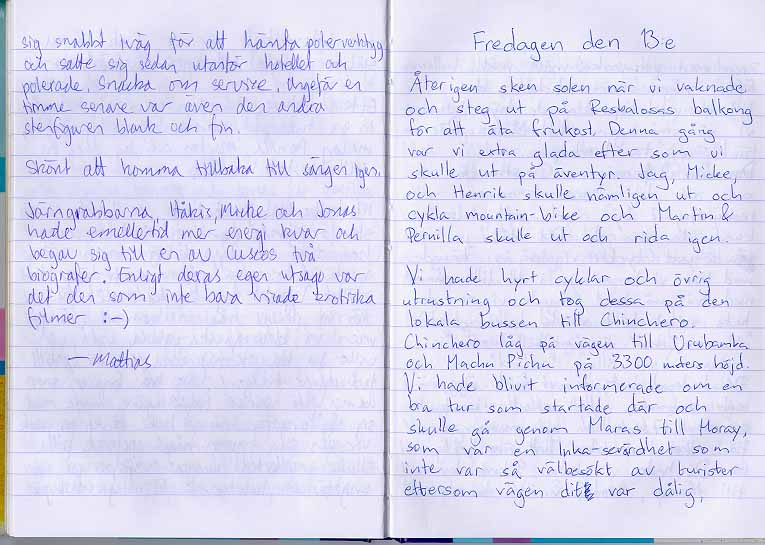 sig snabbt iväg för att hämta polerverktyg
och satte sig sedan utanför hotellet och
polerade. Snacka om service. Ungefär en
timme senare var även den andra
stenfiguren blank och fin.
Skönt att komma tillbaka till sängen igen.
Järngrabbarna, Håkis, Micke och Jonas
hade emellertid mer energi kvar och
begav sig till en av Cuscos två
biografer. Enligt deras egen utsago var
det den som inte bara visade erotiska
filmer :-)
— Mattias
Fredagen den 13:e
Återigen sken solen när vi vaknade
och steg ut på Resbalosas balkong
för att äta frukost. Denna gång
var vi extra glada efter som vi
skulle ut på äventyr. Jag, Micke,
och Henrik skulle nämligen ut och
cykla mountain-bike och Martin &
Pernilla skulle ut och rida igen.
Vi hade hyrt cyklar och övrig
utrustning och tog dessa på den
lokala bussen till Chinchero.
Chinchero låg på vägen till Urubamba
och Machu Pichu på 3300 meters höjd.
Vi hade blivit informerade om en
bra tur som startade där och
skulle gå genom Maras till Moray,
som var en Inka-sevärdhet som
inte var så välbesökt av turister
eftersom vägen dit var dålig,